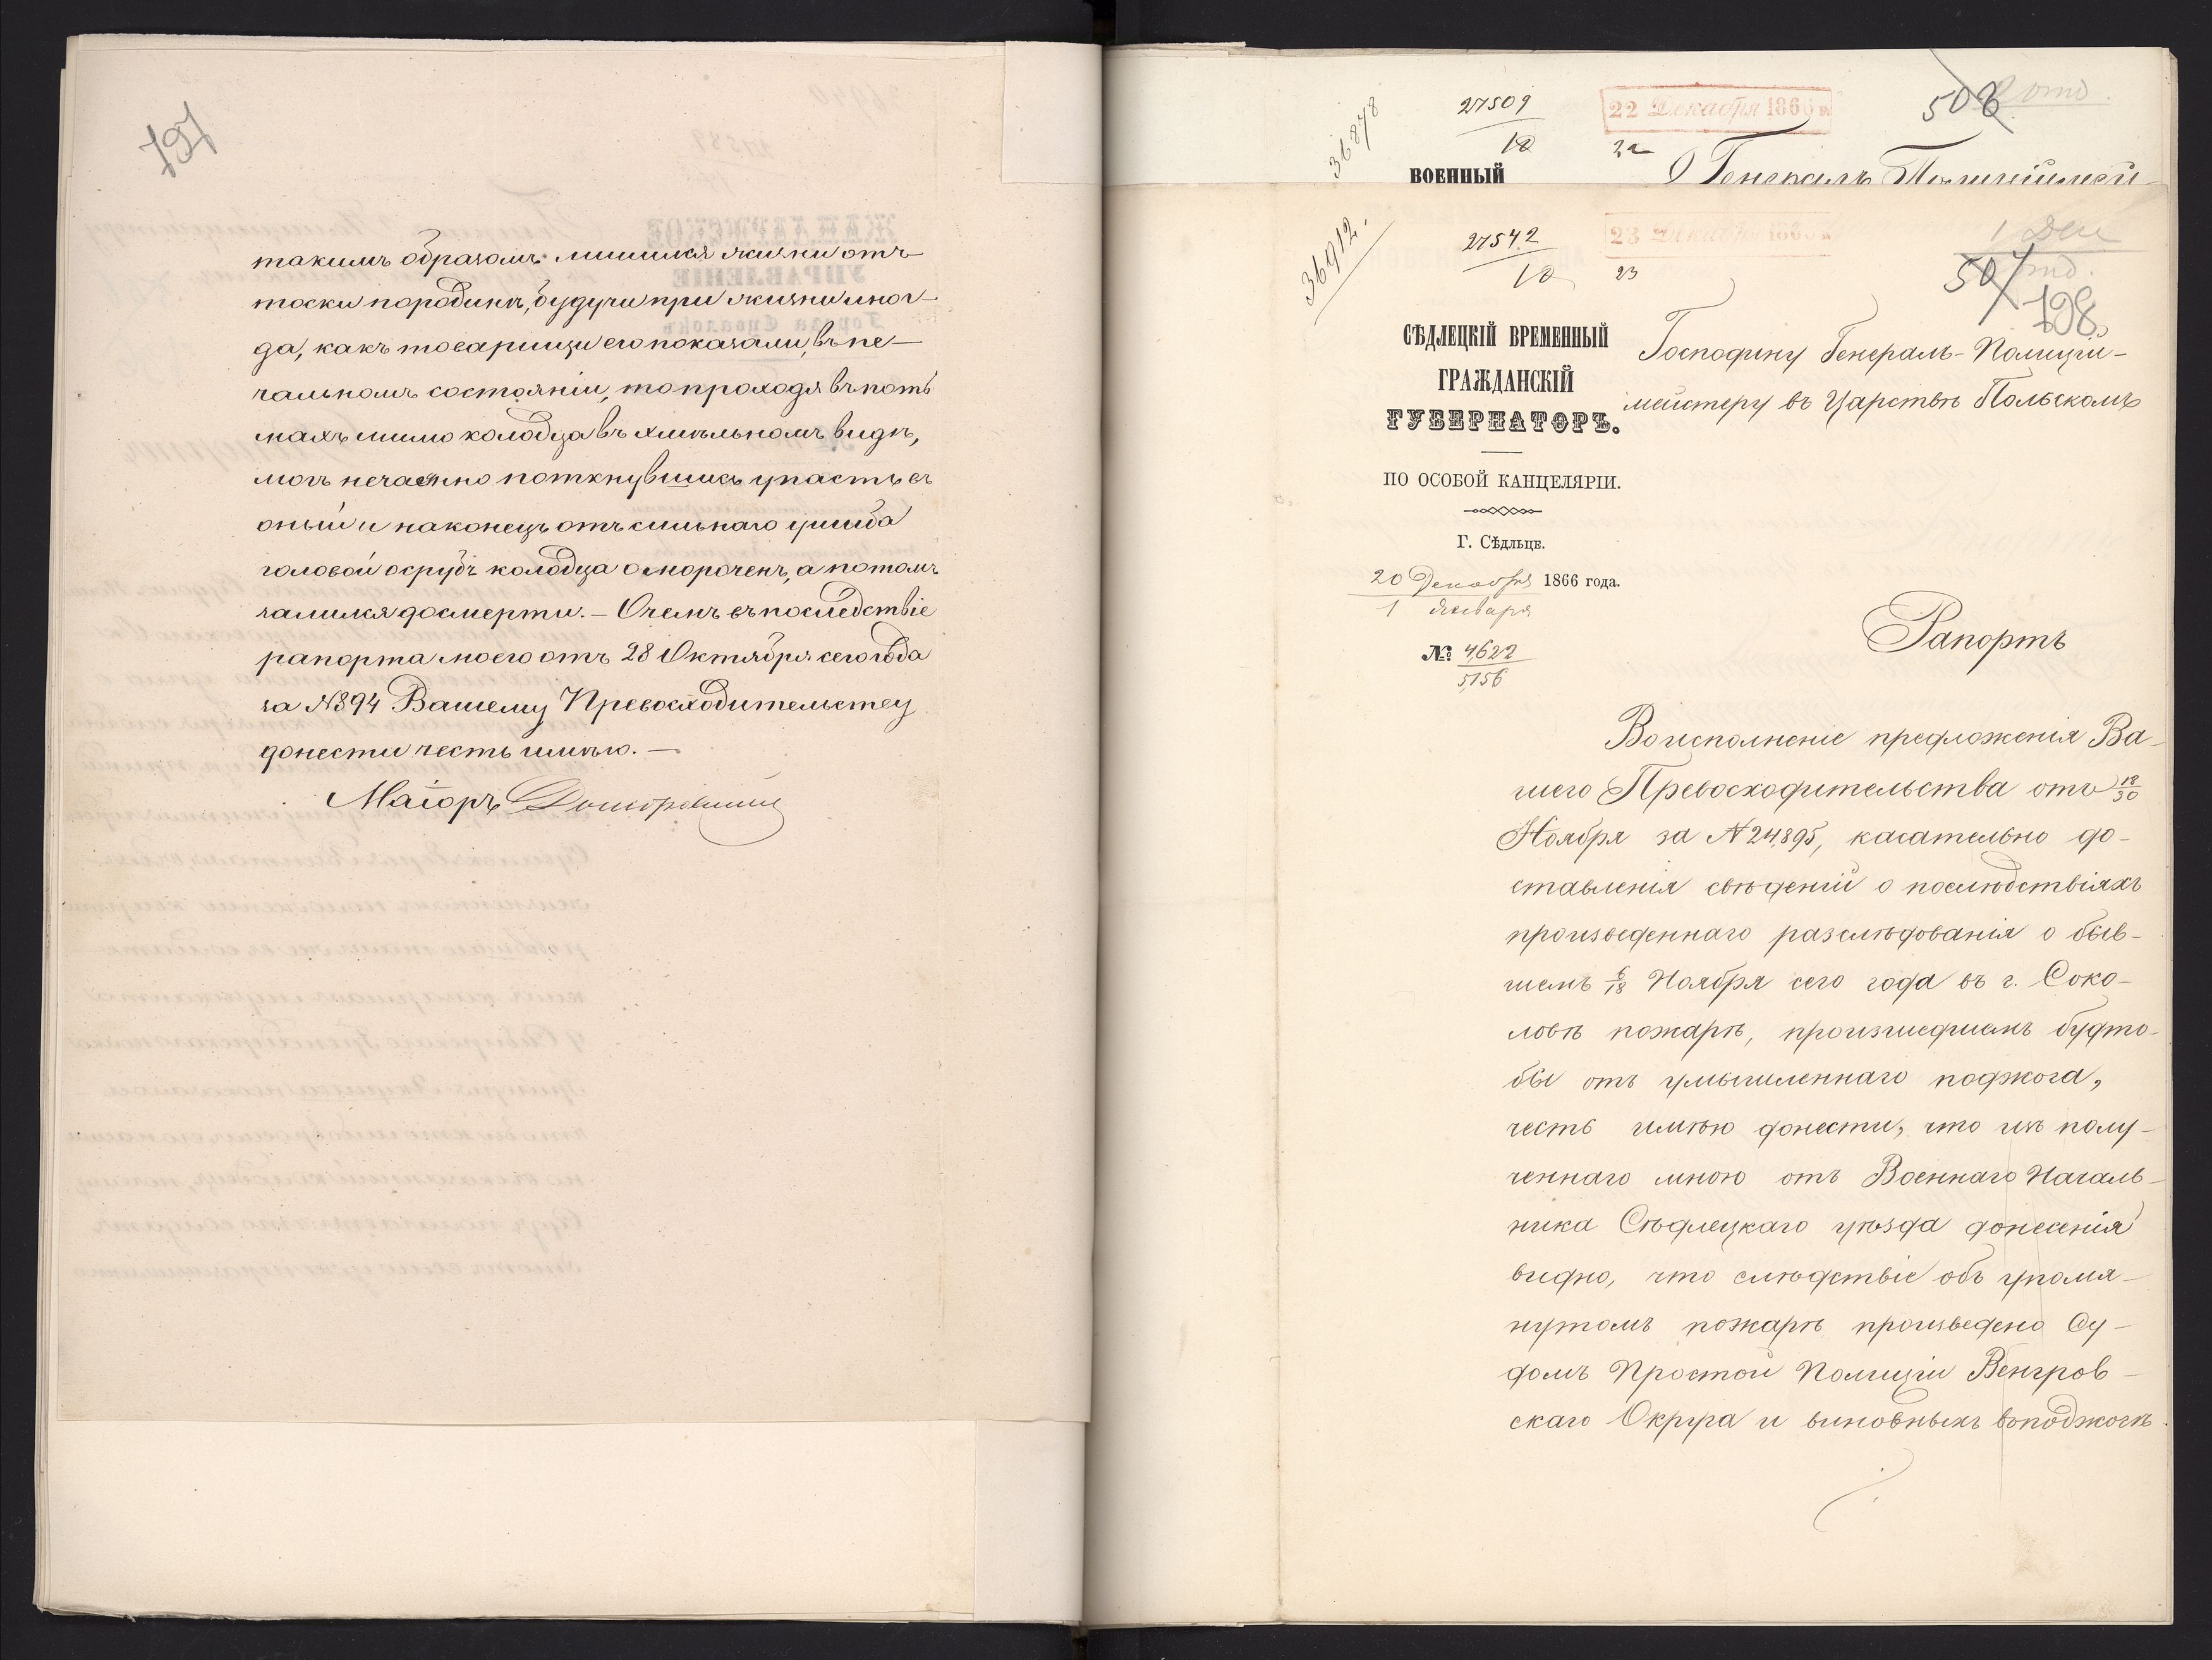 797
такимъ образомъ лишился жизни отъ
тоски породинѣ, будучи при жизни иног-
да, какъ товарищи его показали, въ пе-
чальномъ состояніи, то проходя въ потъ
махъ мимо колодца въ хмѣльномъ видѣ,
могъ нечаянно поткнувшись упасть въ
оный и наконецъ отъ сильнаго ушиба
головой о срубъ колодца омороченъ, а потомъ
залился до смерти. — О чемъ въ последствіе
рапорта моего отъ 28 Октября сего года
за №394 Вашему Превосходительству
донести честь имѣю. —
Маіоръ
36878
27509
10
22 Декабря 1866
22
508
2 отд.
ВОЕННЫЙ
Генералъ Полиціймей-
36912.
27542
10
23 Декабря 1866
23
507
798
СѢДЛЕЦКІЙ ВРЕМЕННЫЙ
ГРАЖДАНСКІЙ
ГУБЕРНАТОРЪ.
ПО ОСОБОЙ КАНЦЕЛЯРІИ.
Г. Сѣдльце.
20 Декабря 1866 года.
1 Января
№ 4622
5156
Господину Генералъ-Полицій-
мейстеру въ Царствѣ Польскомъ
Рапортъ
Во исполненіе предложенія Ва-
шего Превосходительства отъ 18/30
Ноября за № 24,895, касательно до-
ставленія свѣденій о послѣдствіяхъ
произведеннаго разслѣдованія о быв-
шемъ 6/18 Ноября сего года въ г. Соко-
ловѣ пожарѣ, произшедшемъ будто-
бы отъ умышленнаго поджога,
честь имѣю донести, что изъ полу-
ченнаго мною отъ Военнаго Началь-
ника Сѣдлецкаго уѣзда донесенія
видно, что слѣдствіе объ упомя-
нутомъ пожарѣ произведено Су-
домъ Простой Полиціи Венгров-
скаго Округа и виновныхъ въ поджогѣ